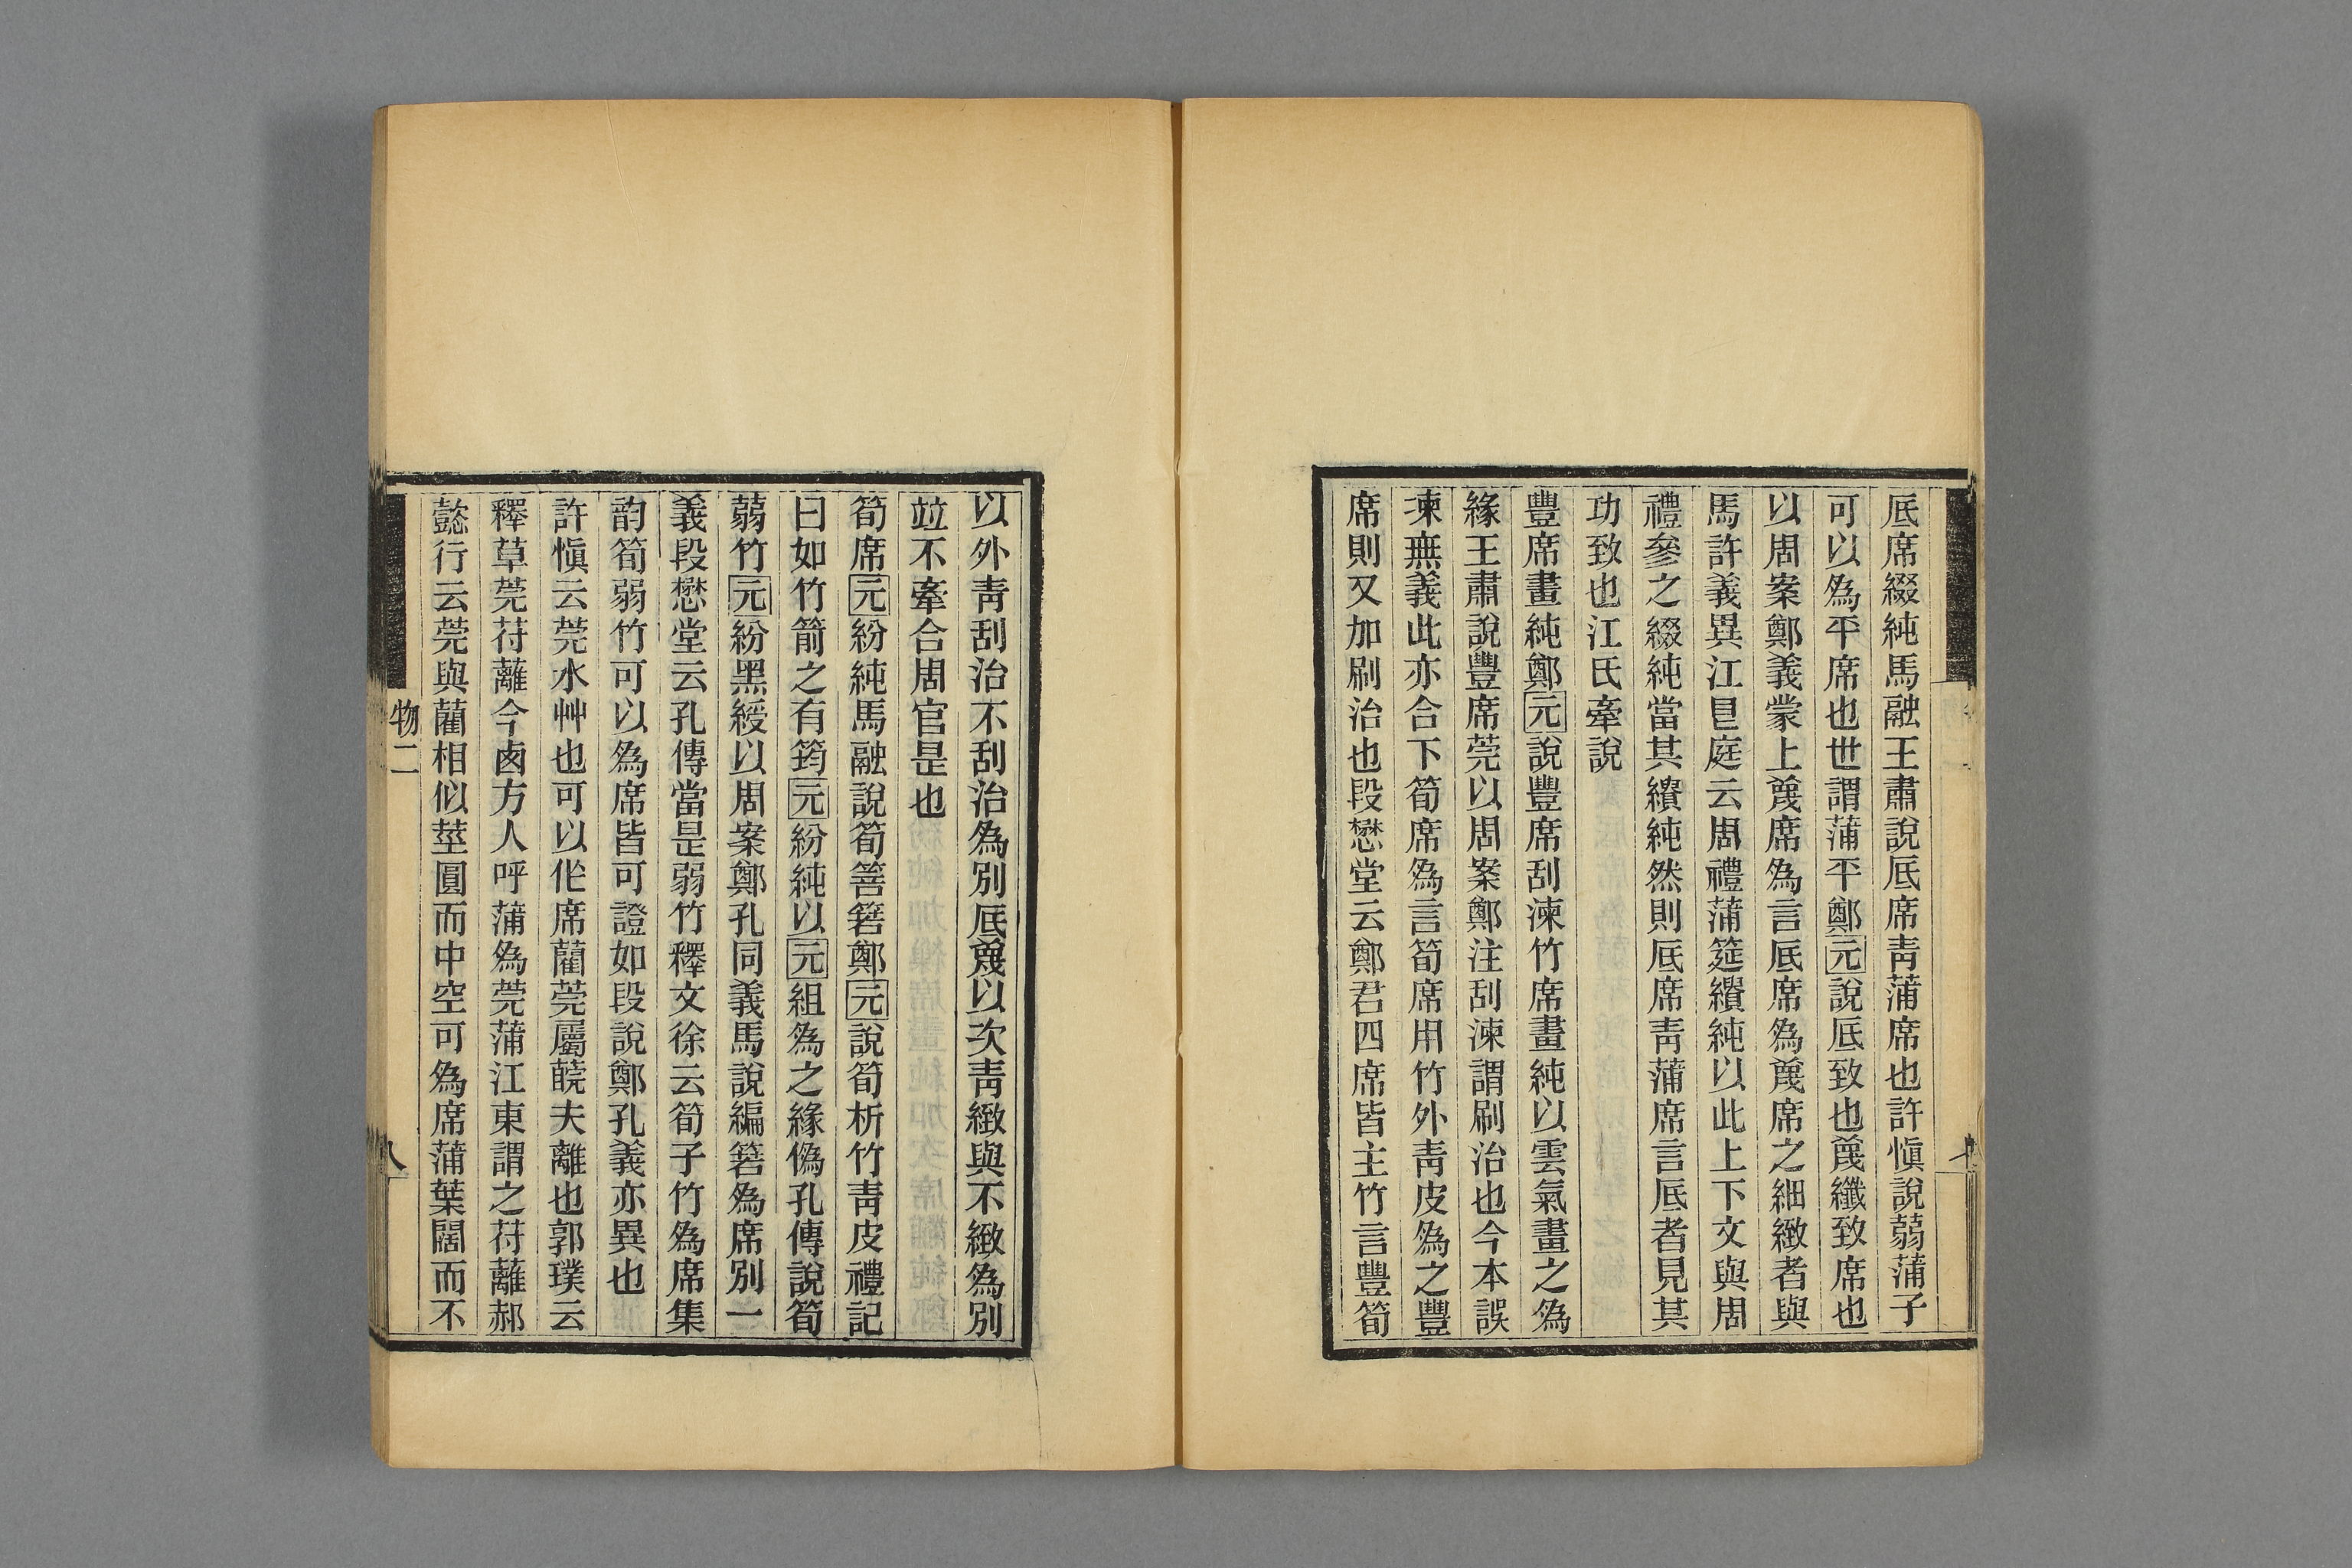 厎席綴純馬融王肅說厎席靑蒲席也許愼說蒻蒲子
可以爲平席也世謂蒲平鄭元說厎致也篾纖致席也
以周案鄭義蒙上篾席爲言厎席爲篾席之細緻者與
馬許義異江艮庭云周禮蒲筵繢純以此上下文與周
禮參之綴純當其繢純然則厎席靑蒲席言厎者見其
功致也江氏牽說
豐席畫純鄭元說豐席刮湅竹席畫純以雲氣畫之爲
緣王肅說豐席莞以周案鄭注刮湅謂刷治也今本誤
凍無義此亦合下筍席爲言筍席用竹外靑皮爲之豐
席則又加刷治也段懋堂云鄭君四席皆主竹言豐筍
以外靑刮治不刮治爲別厎篾以次靑緻與不緻爲別
竝不牽合周官是也
筍席元紛純馬融說筍箁箬鄭元說筍析竹靑皮禮記
曰如竹箭之有筠元紛純以元組爲之緣僞孔傳說筍
蒻竹元紛黑綬以周案鄭孔同義馬說編箬爲席別一
義段懋堂云孔傳當是弱竹釋文徐云筍子竹爲席集
韵筍弱竹可以爲席皆可證如段說鄭孔義亦異也
許愼云莞水艸也可以作席藺莞屬莞夫離也郭璞云
釋草莞苻蘺今鹵方人呼蒲爲莞蒲江東謂之苻蘺郝
懿行云莞與藺相似莖圓而中空可爲席蒲葉闊而不
物二
八